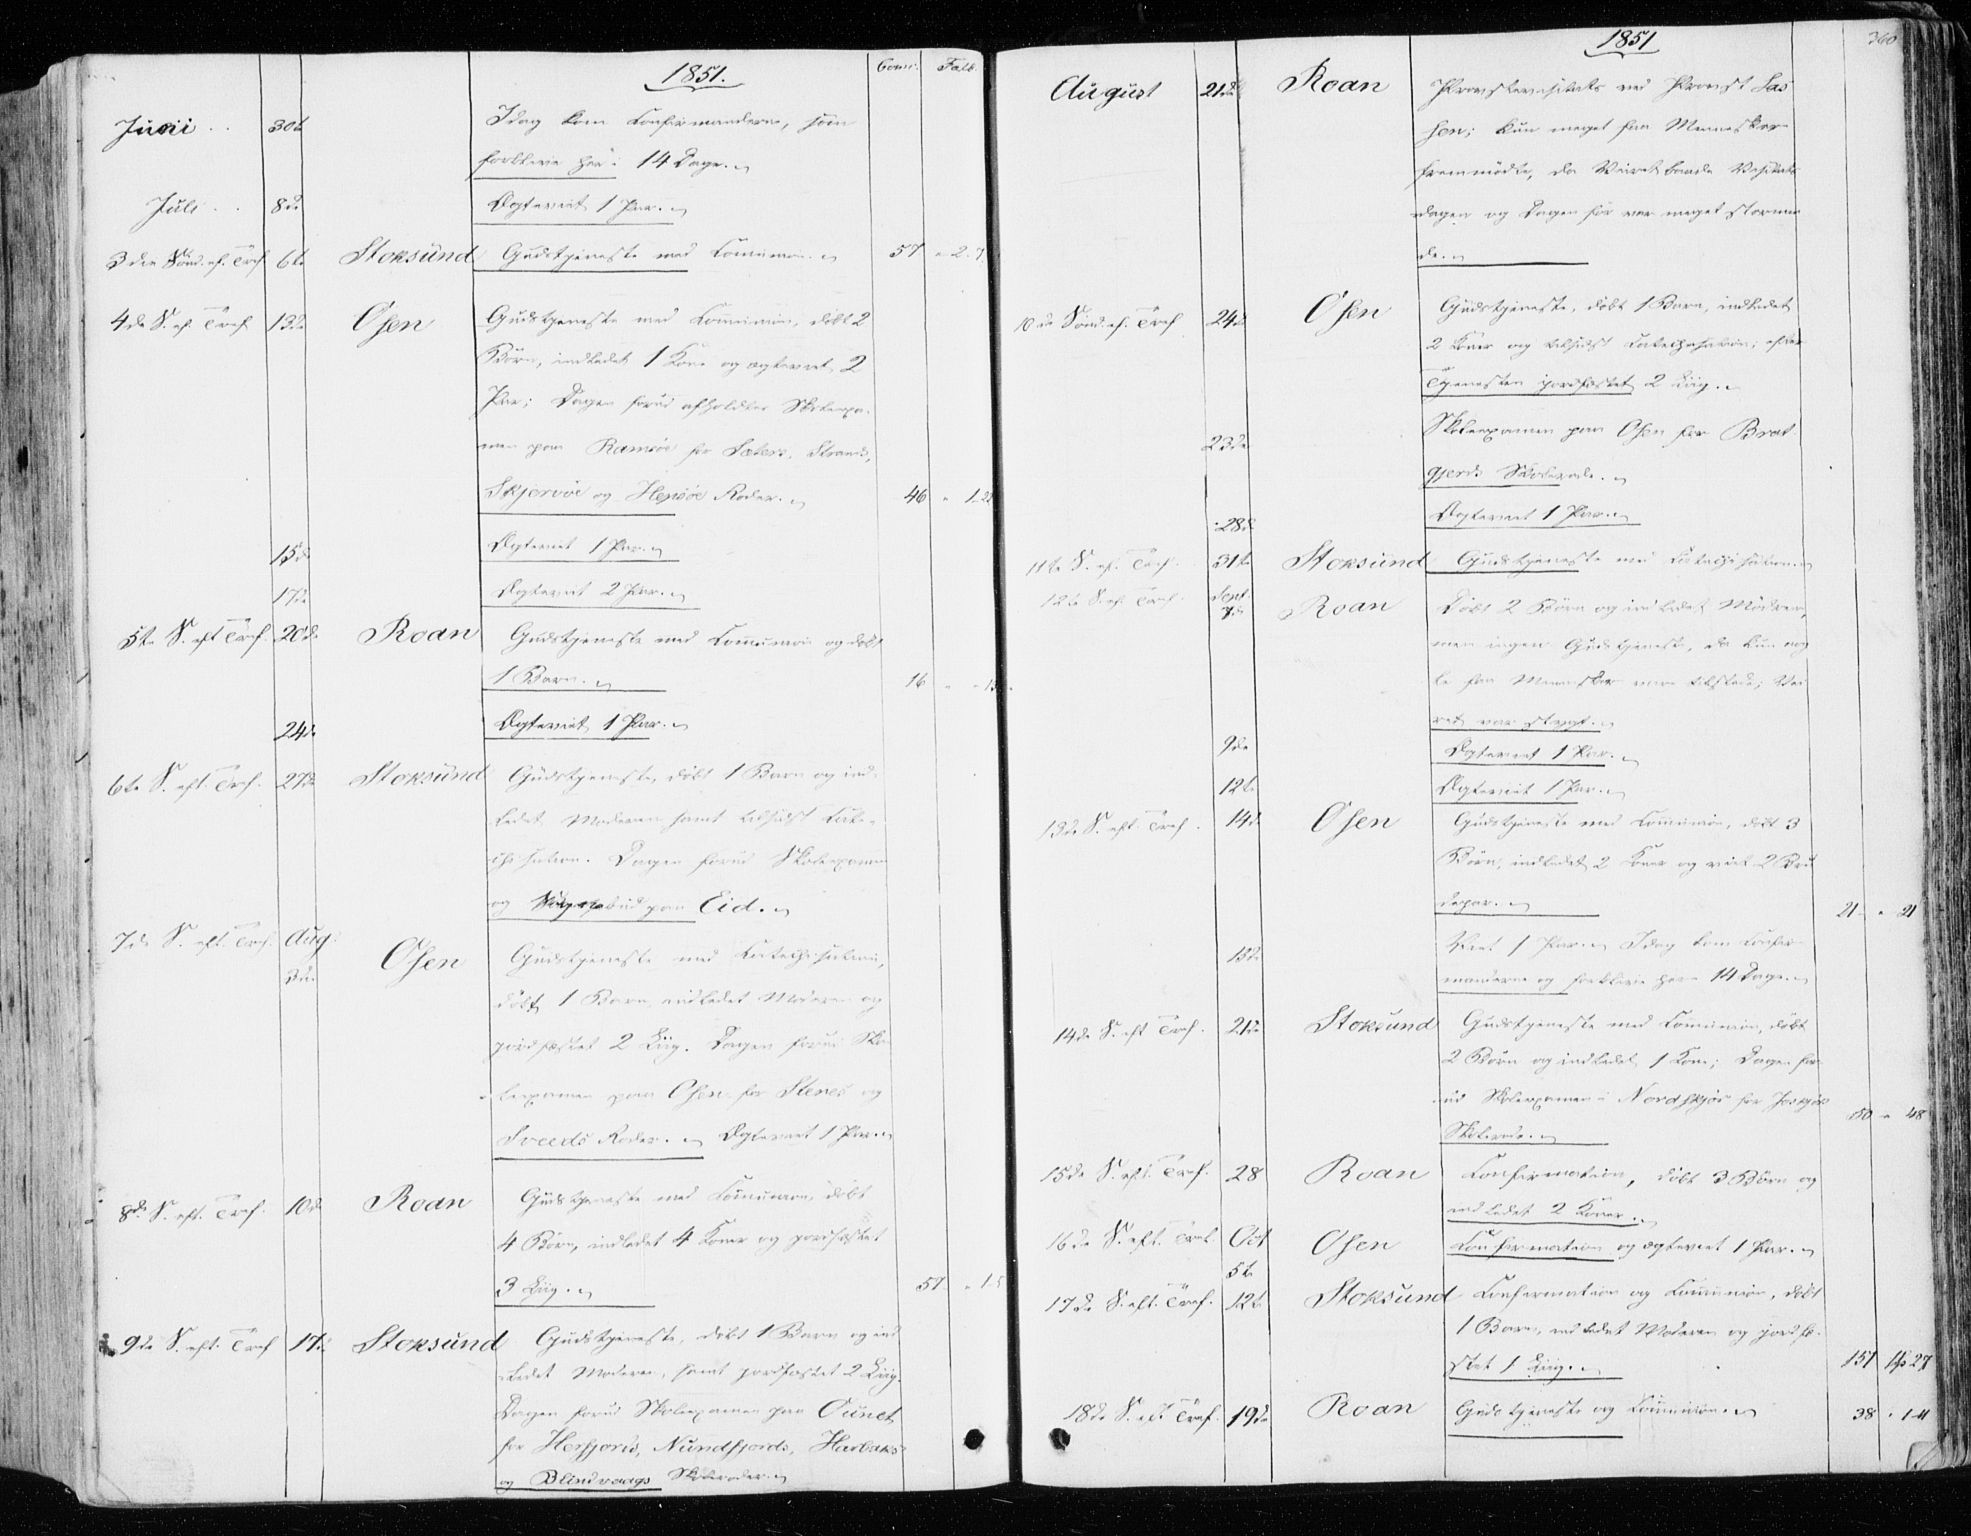 1851. Com: Talb.
Juni . . 30te Idag kom Confirmanderne, som
forbleve her i 14 Dage.
Juli . . 8de Ægteviet 1 Par.
3die Sönd. ef. Tref. 6te Stoksund Gudstjeneste med Communion. 57
4de S. ef. Tref. 13de Osen Gudstjeneste med Communion, döbt 2
Börn, indledet 1 Kone og ægteviet 2
Par; Dagen forud afholdtes Skoleexa-
men paa Ramsöe for Sæters, Strands,
Skjervöe og Hepsöe Roder. 46
15de Ægteviet 1 Par.
17de Ægteviet 2 Par.
5te S. eft Tref. 20de Roan Gudstjeneste med Communion og döbt
1 Barn. 16
24de Ægteviet 1 Par.
6te S. eft. Tref. 27de Stoksund Gudstjeneste, döbt 1 Barn og ind-
ledet Moderen samt tilsidst Cate-
chisation. Dagen forud Skoleexamen
og paa Eid.
7de S. eft. Tref. Aug. 3die Osen Gudstjeneste med Catechisation,
döbt 1 Barn, indledet Moderen og
jordfæstet 2 Liig. Dagen forud Sko-
leexamen paa Osen for Stenes og
Sveeds Roder. Ægteviet 1 Par.
8de S. eft. Tref. 10de Roan Gudstjeneste med Communion, döbt
4 Börn, indledet 4 Koner og jordfæstet
3 Liig. 57
9de S. eft. Tref 17de Stoksund Gudstjeneste, döbt 1 Barn og ind-
ledet Moderen, samt jordfæstet 2 Liig.
Dagen forud Skoleexamen paa Ounet
for Herfjords, Nundfjords, Harbaks
og Blindvaags Skoleroder.
1851 360
August 21de Roan Provstevisitats ved Provst Las-
sen; kun meget faa Mennesker
fremmödte, da Veiret baade Visitats
dagen og Dagen för var meget stormen
de.
10de Sönd. ef. Tref 24de Osen Gudstjeneste, döbt 1 Barn, indledet
2 Koner og tilsidst Catechisation; efter
Tjenesten jordfæstet 2 Liig.
23de Skoleexamen paa Osen for Brat-
gjerds Skolerode.
28de Ægteviet 1 Par.
11te S. ef. Tref. 31te Stoksund Gudstjeneste med Catechisation
12te S. ef. Tref. Sept. 7de Roan Döbt 2 Börn og indledet Mödrene,
men ingen Gudstjeneste, da kun nog-
le faa Mennesker vare tilstede; Vei
ret var stygt.
9de Ægteviet 1 Par.
12te Ægteviet 1 Par.
13de S. eft. Tref. 14de Osen Gudstjeneste med Communion, döbt 3
Börn, indledet 2 Koner og viet 2 Bru
depar. 21 " 21
Viet 1 Par. Idag kom Confir-
manderne og forbleve her 14 Dage.
14de S. eft Tref. 21de Stoksund Gudstjeneste med Communion, döbt
2 Börn og indledet 1 Kone; Dagen for-
ud Skoleexamen i Nordskjör for
Skolerode. 48
15de S. eft. Tref. 28 Roan Confirmation, döbt 3 Börn og
indledet 2 Koner.
16de S. eft. Tref. Oct 5te Osen Confirmation og ægteviet 1 Par.
17de S. eft. Tref. 12te Stoksund Confirmation og Communion, döbt
1 Barn, indledet Moderen og jordfæ-
stet 1 Liig. 151
18de S. eft Tref. 19de Roan Gudstjeneste og Communion. 38